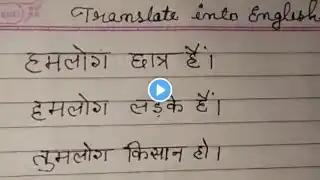 Translate into English.
हमलोग छात्र हैं।
हमलोग लड़के हैं।
तुमलोग किसान हो।